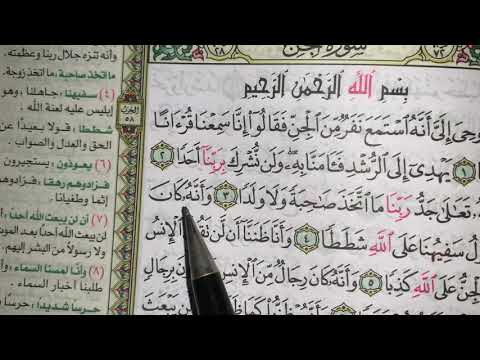 سورة الجن
٧٢
٢٨
بِسْمِ اللَّهِ الرَّحْمَٰنِ الرَّحِيمِ
وحِىَ إِلَىَّ أَنَّهُ ٱسْتَمَعَ نَفَرٌ مِّنَ ٱلْجِنِّ فَقَالُوٓا۟ إِنَّا سَمِعْنَا قُرْءَانًا
١ يَهْدِىٓ إِلَى ٱلرُّشْدِ فَـَٔامَنَّا بِهِۦ ۖ وَلَن نُّشْرِكَ بِرَبِّنَآ أَحَدًا ٢
تَعَٰلَىٰ جَدُّ رَبِّنَا مَا ٱتَّخَذَ صَٰحِبَةً وَلَا وَلَدًا ٣ وَأَنَّهُۥ كَانَ
ولُ سَفِيهُنَا عَلَى ٱللَّهِ شَطَطًا ٤ وَأَنَّا ظَنَنَّآ أَن لَّن تَقُولَ ٱلْإِنسُ
جِنُّ عَلَى ٱللَّهِ كَذِبًا ٥ وَأَنَّهُۥ كَانَ رِجَالٌ مِّنَ ٱلْإِنسِ بِرِجَالٍ
الحزب
٥٨
وأنه تنزه جلال ربنا وعظمته.
ما اتخذ صاحبة، ما اتخذ زوجة.
(٤) سفيهنا، جاهلنا، وهو
إبليس عليه لعنة الله.
شططا، قولا بعيدًا عن
الحق والعدل والصواب
(٦) يعوذون، يستجيرون
فزادوهم رهقا، فزادوهم
إثما وطغيانا
(٧) أن لن يبعث الله أحدا
لن يبعث الله أحدًا بعد المو
ولا رسولاً من البشر إليهم.
(٨) وأنا لمسنا السماء
طلبنا أخبار السماء
حرسا شديدا، حرسًا